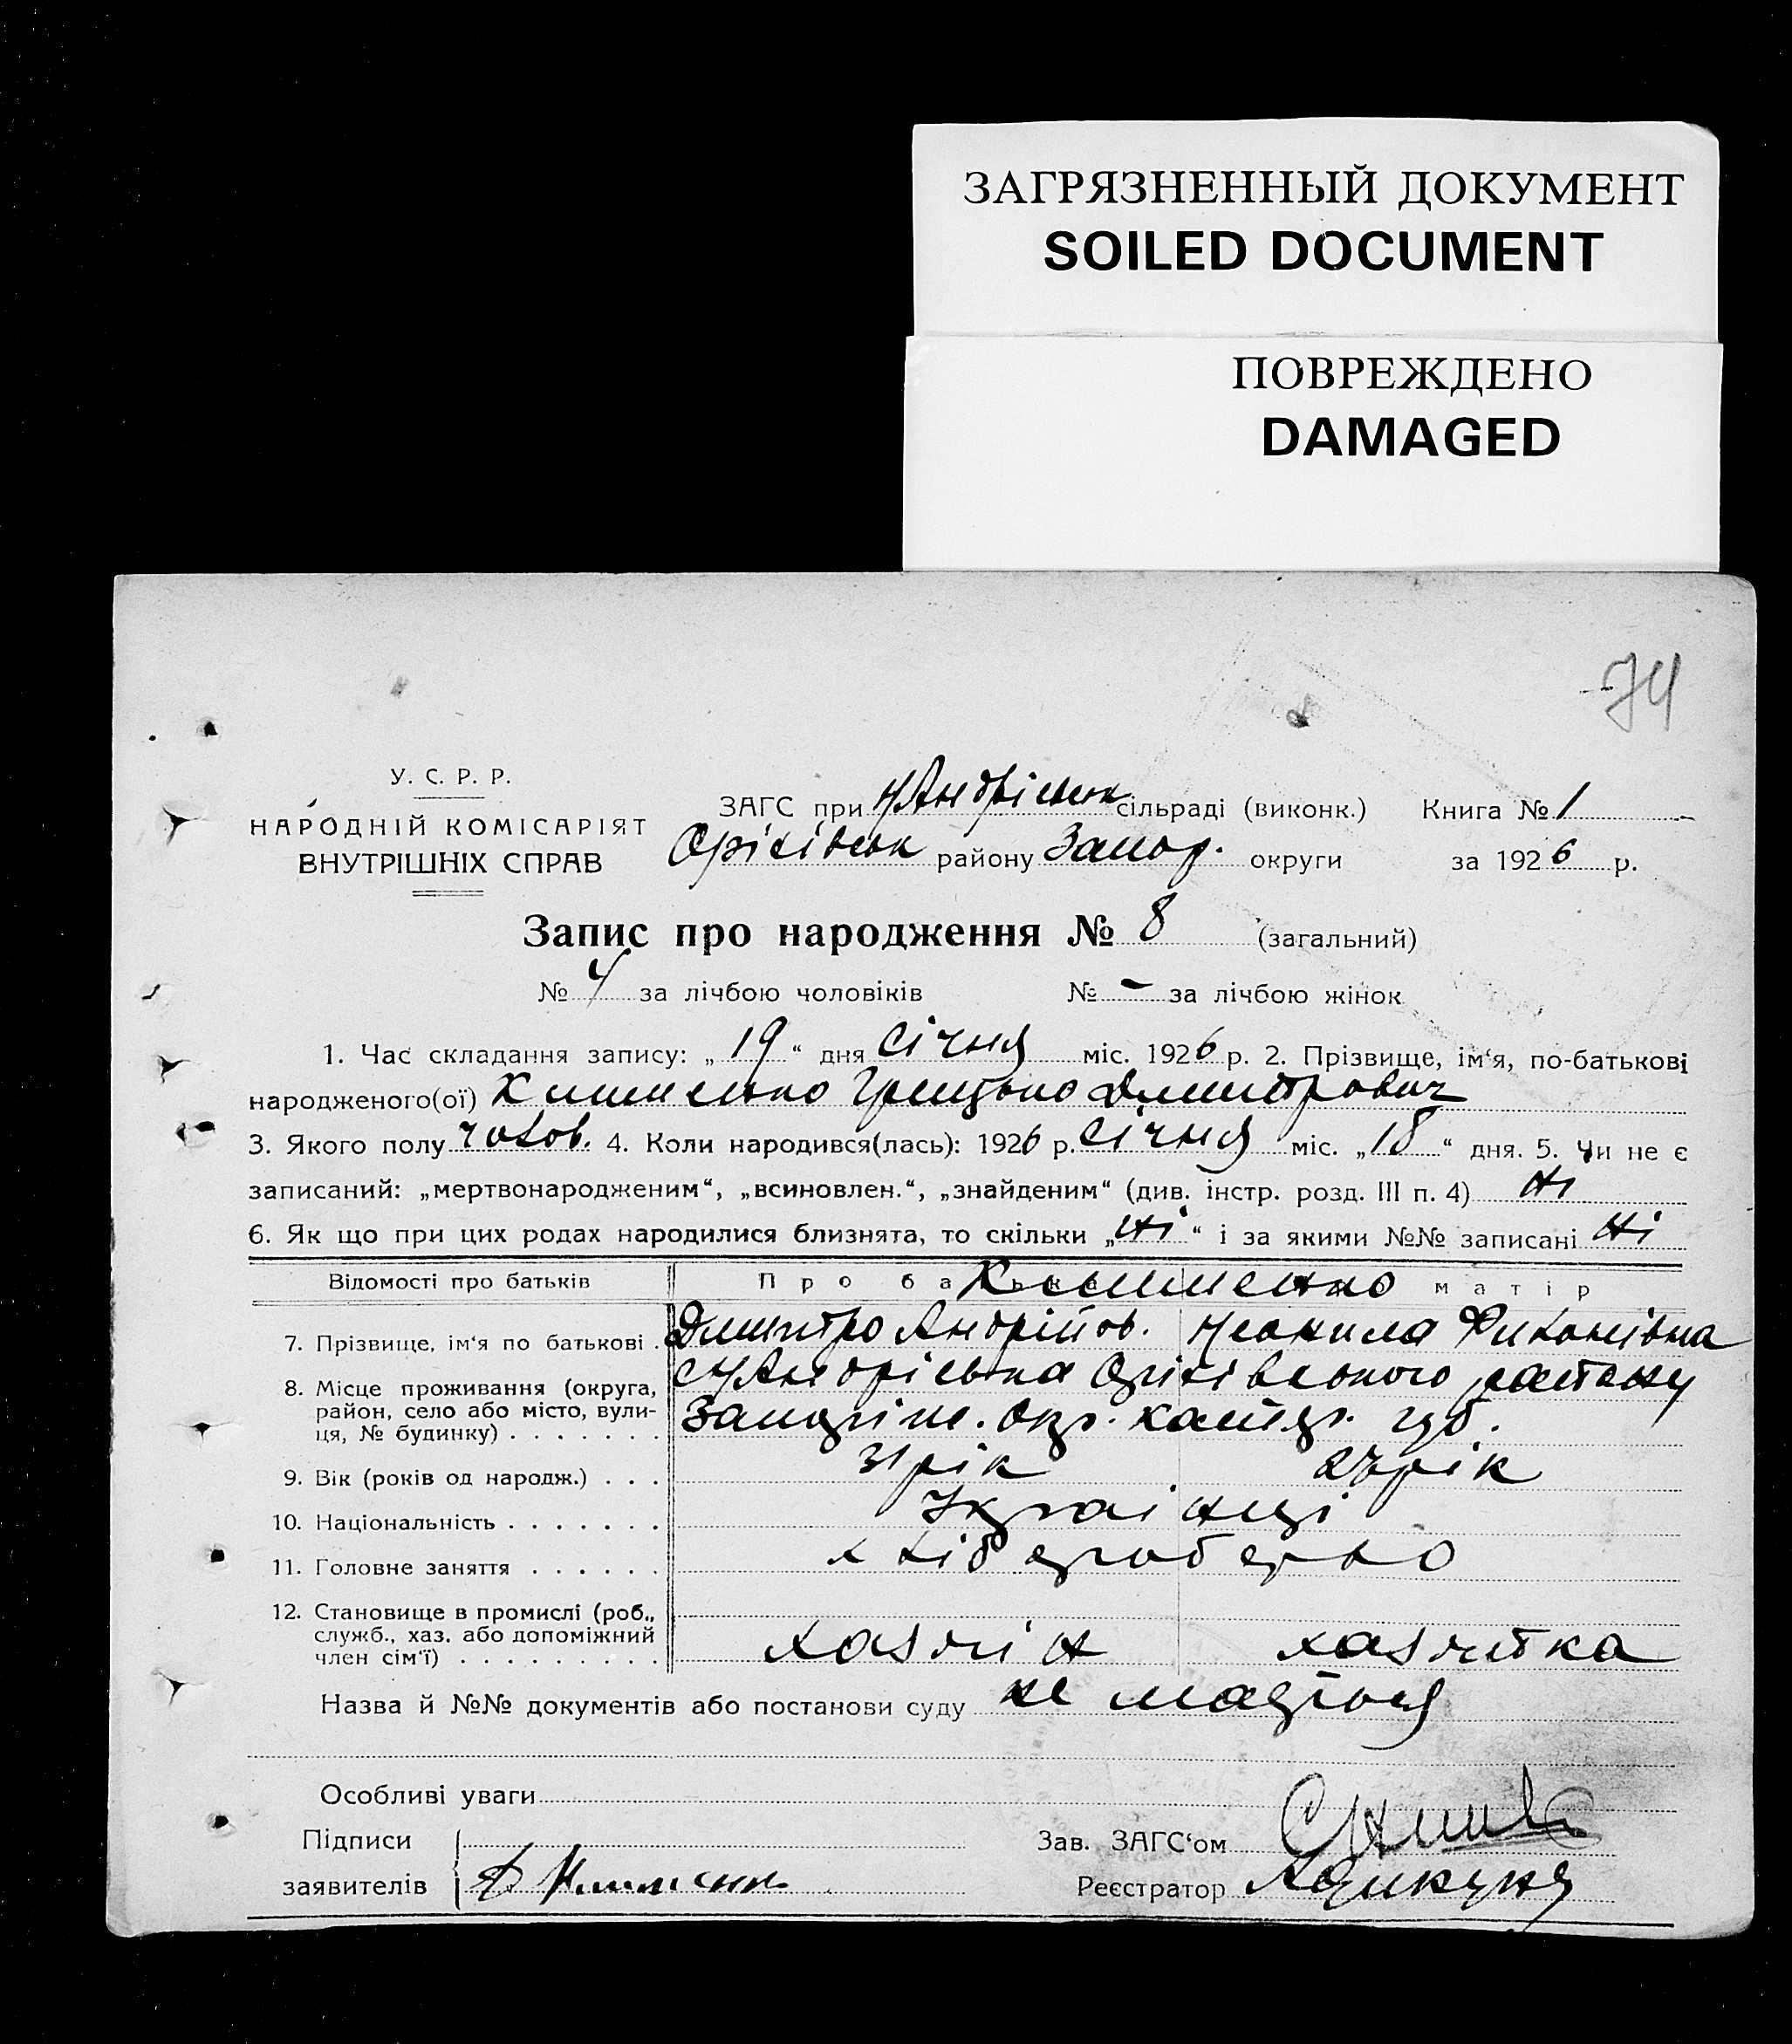 ЗАГРЯЗНЕННЫЙ ДОКУМЕНТ
SOILED DOCUMENT
ПОВРЕЖДЕНО
DAMAGED
74
У. С. Р. Р.
НАРОДНІЙ КОМІСАРІЯТ
ВНУТРІШНІХ СПРАВ
ЗАГС при Н Андріевск сільраді (виконк.) Книга № 1
Оріхівськ району Запор. округи за 1926 р.
Запис про народження № 8 (загальний)
№ 4 за лічбою чоловіків № - за лічбою жінок
1. Час складання запису: „19“ дня Січня міс. 1926 р. 2. Прізвище, ім‘я, по-батькові
народженого(ої) Клименко Грицько Дмитрович
3. Якого полу чолов. 4. Коли народився(лась): 1926 р. Січня міс. „18“ дня. 5. Чи не є
записаний: „мертвонародженим“, „всиновлен.“, „знайденим“ (див. інстр. розд. III п. 4) Ні
6. Як що при цих родах народилися близнята, то скільки „Ні“ і за якими №№ записані Ні
Відомості про батьків Про батька Клименко матір
7. Прізвище, ім‘я по батькові . Дмитро Андрійов.
8. Місце проживання (округа, Н Андріевка Оріхівського району
район, село або місто, вули-
ця, № будинку) . . . . . . . Запоріж. окр. Катер. губ.
9. Вік (років од народж.) . . . 31 рік рік
10. Національність . . . . . . . Українці
11. Головне заняття . . . . . . хліборобство
12. Становище в промислі (роб.,
служб., хаз. або допоміжний
член сім‘ї) . . . . . . . . . хазяїн хазяйка
Назва й №№ документів або постанови суду не мається
Особливі уваги
Підписи Зав. ЗАГС‘ом
заявителів Д Клименко Реєстратор